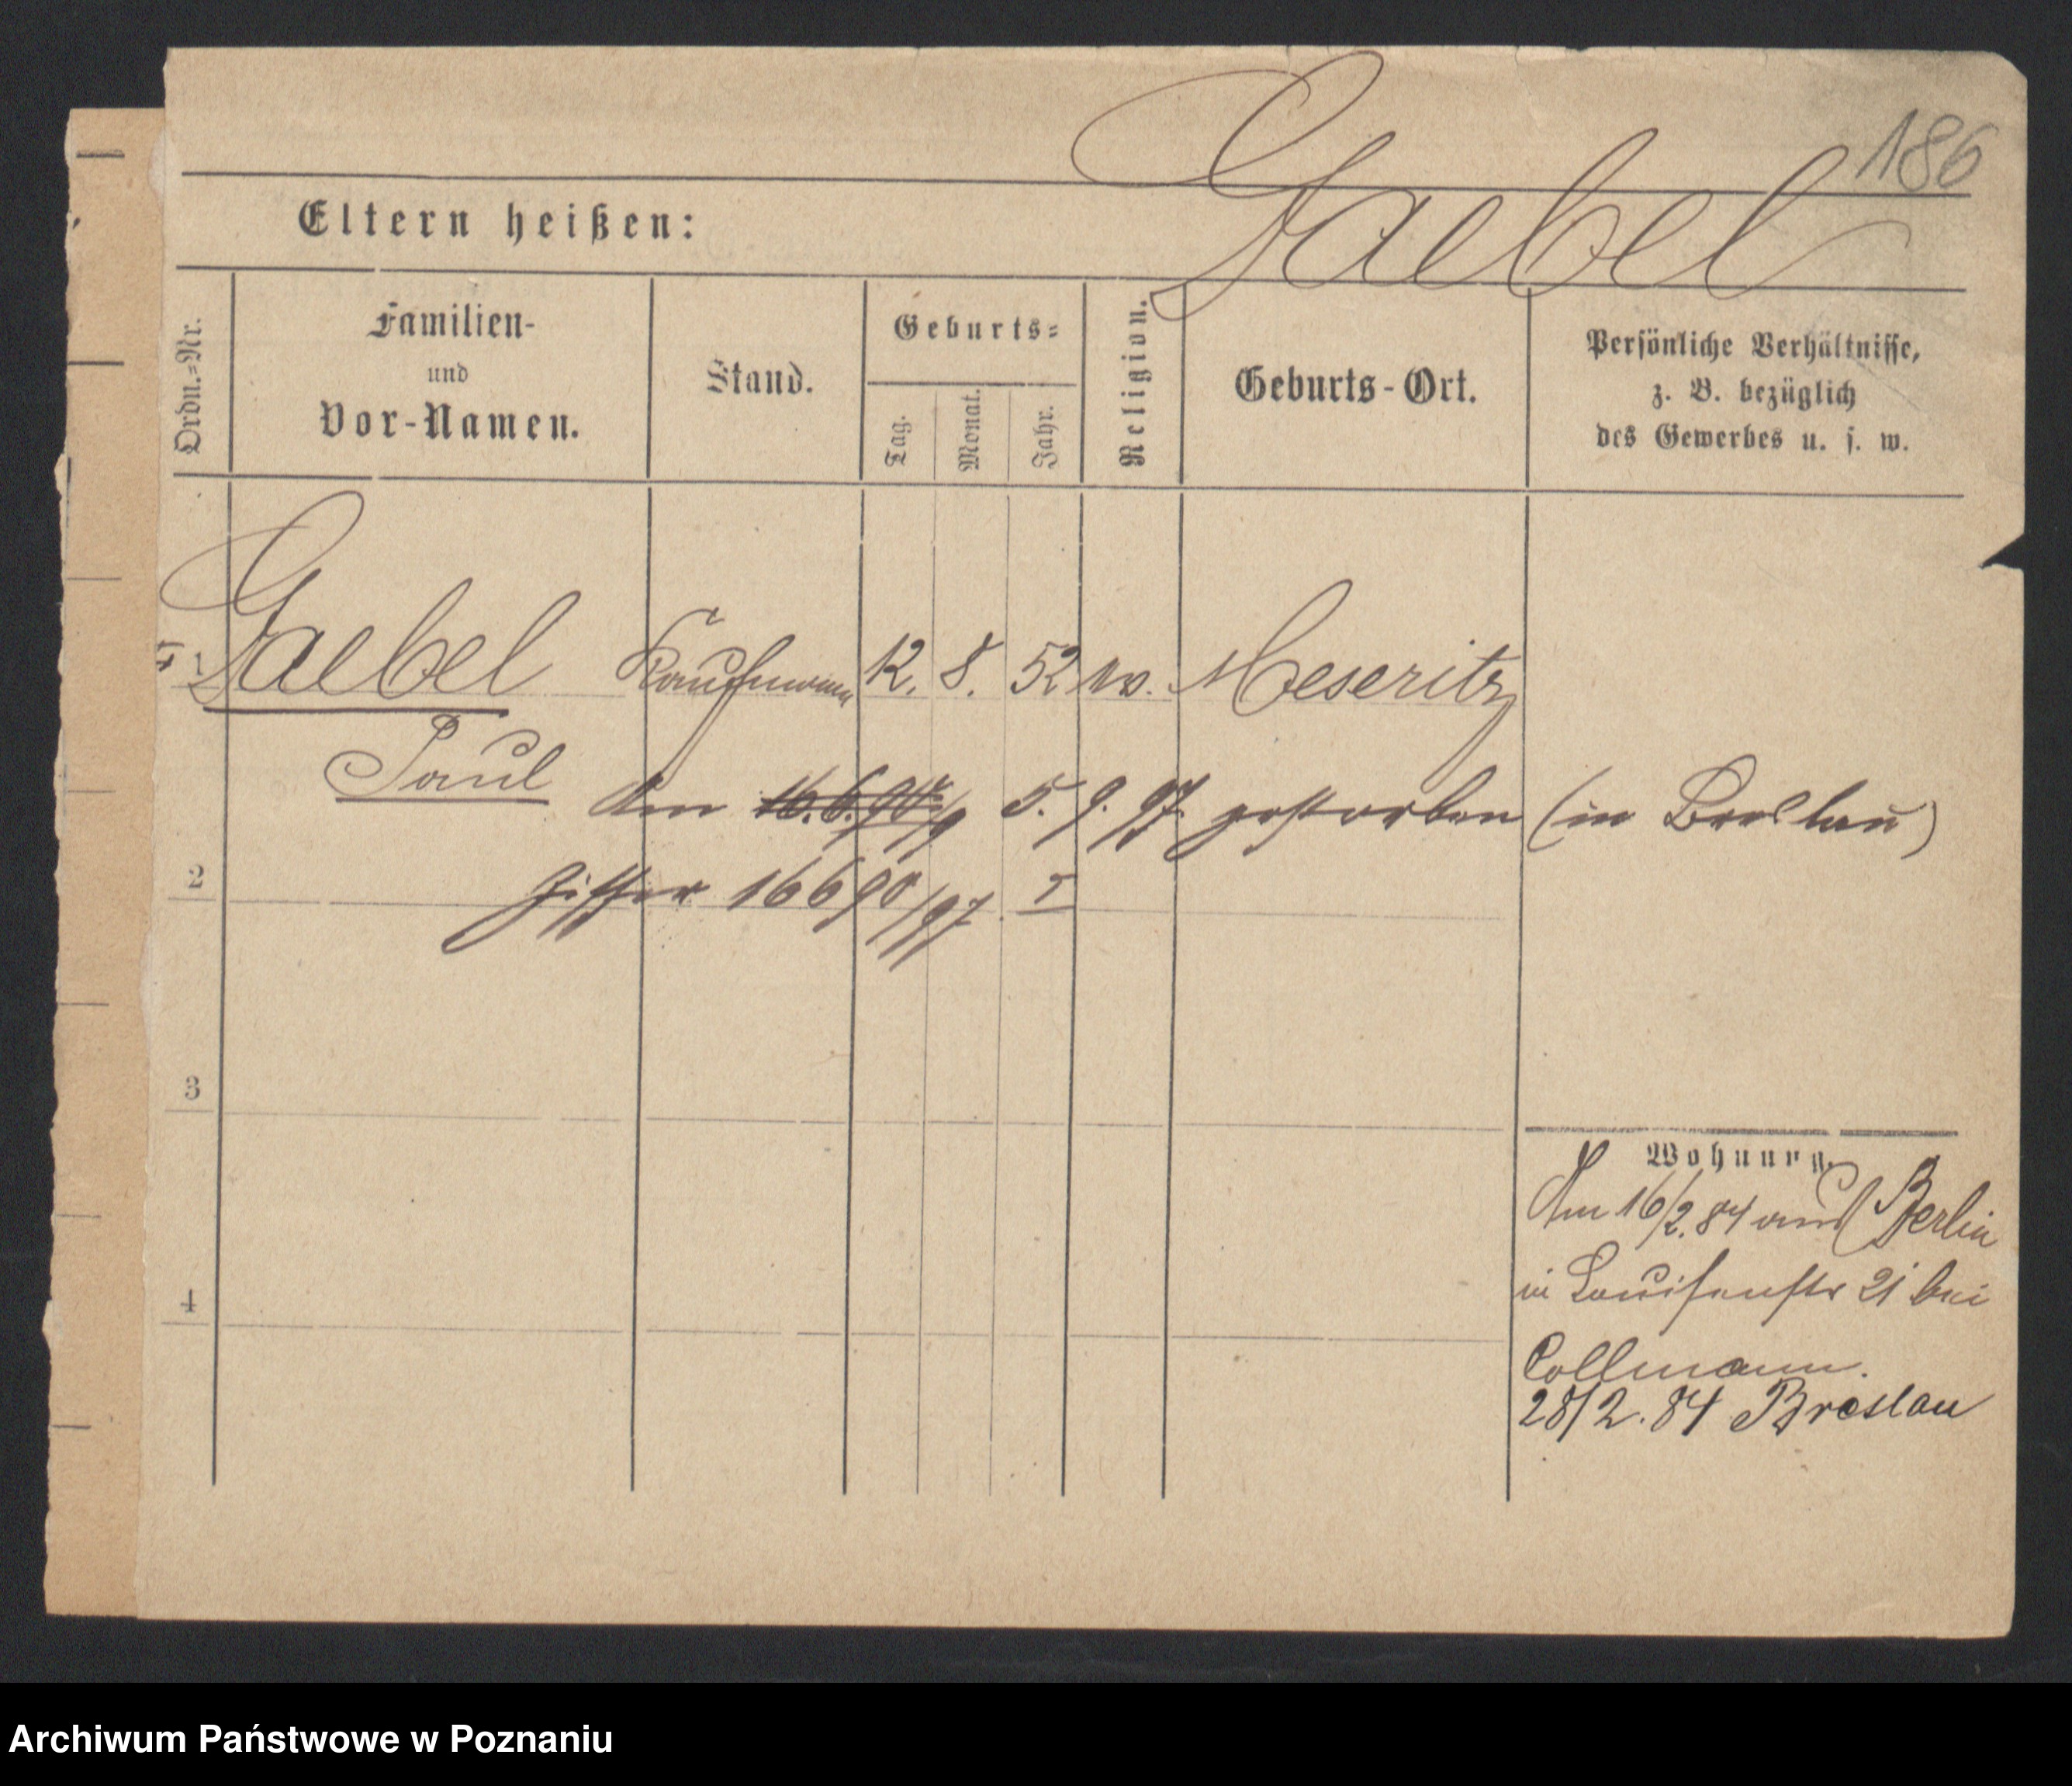 186
Gaebel
Eltern heißen:
Ordn.=Nr.
Familien-
und
Vor-Namen.
Stand.
Geburts=
Tag.
Monat.
Jahr.
Religion.
Geburts-Ort.
Persönliche Verhältnisse,
z. B. bezüglich
des Gewerbes u. s. w.
1 Gaebel Kaufmann 12. 8. 52 Meseritz
Paul
den 16.6.90/9 5. 9. 97. gestorben (in Breslau)
2
Ziffer 16690/97. I
3
4
Wohnung.
Am 16/2. 84 aus Berlin
in Louisenstr 21 bei
Collmann.
28/2. 84 Breslau
Archiwum Państwowe w Poznaniu